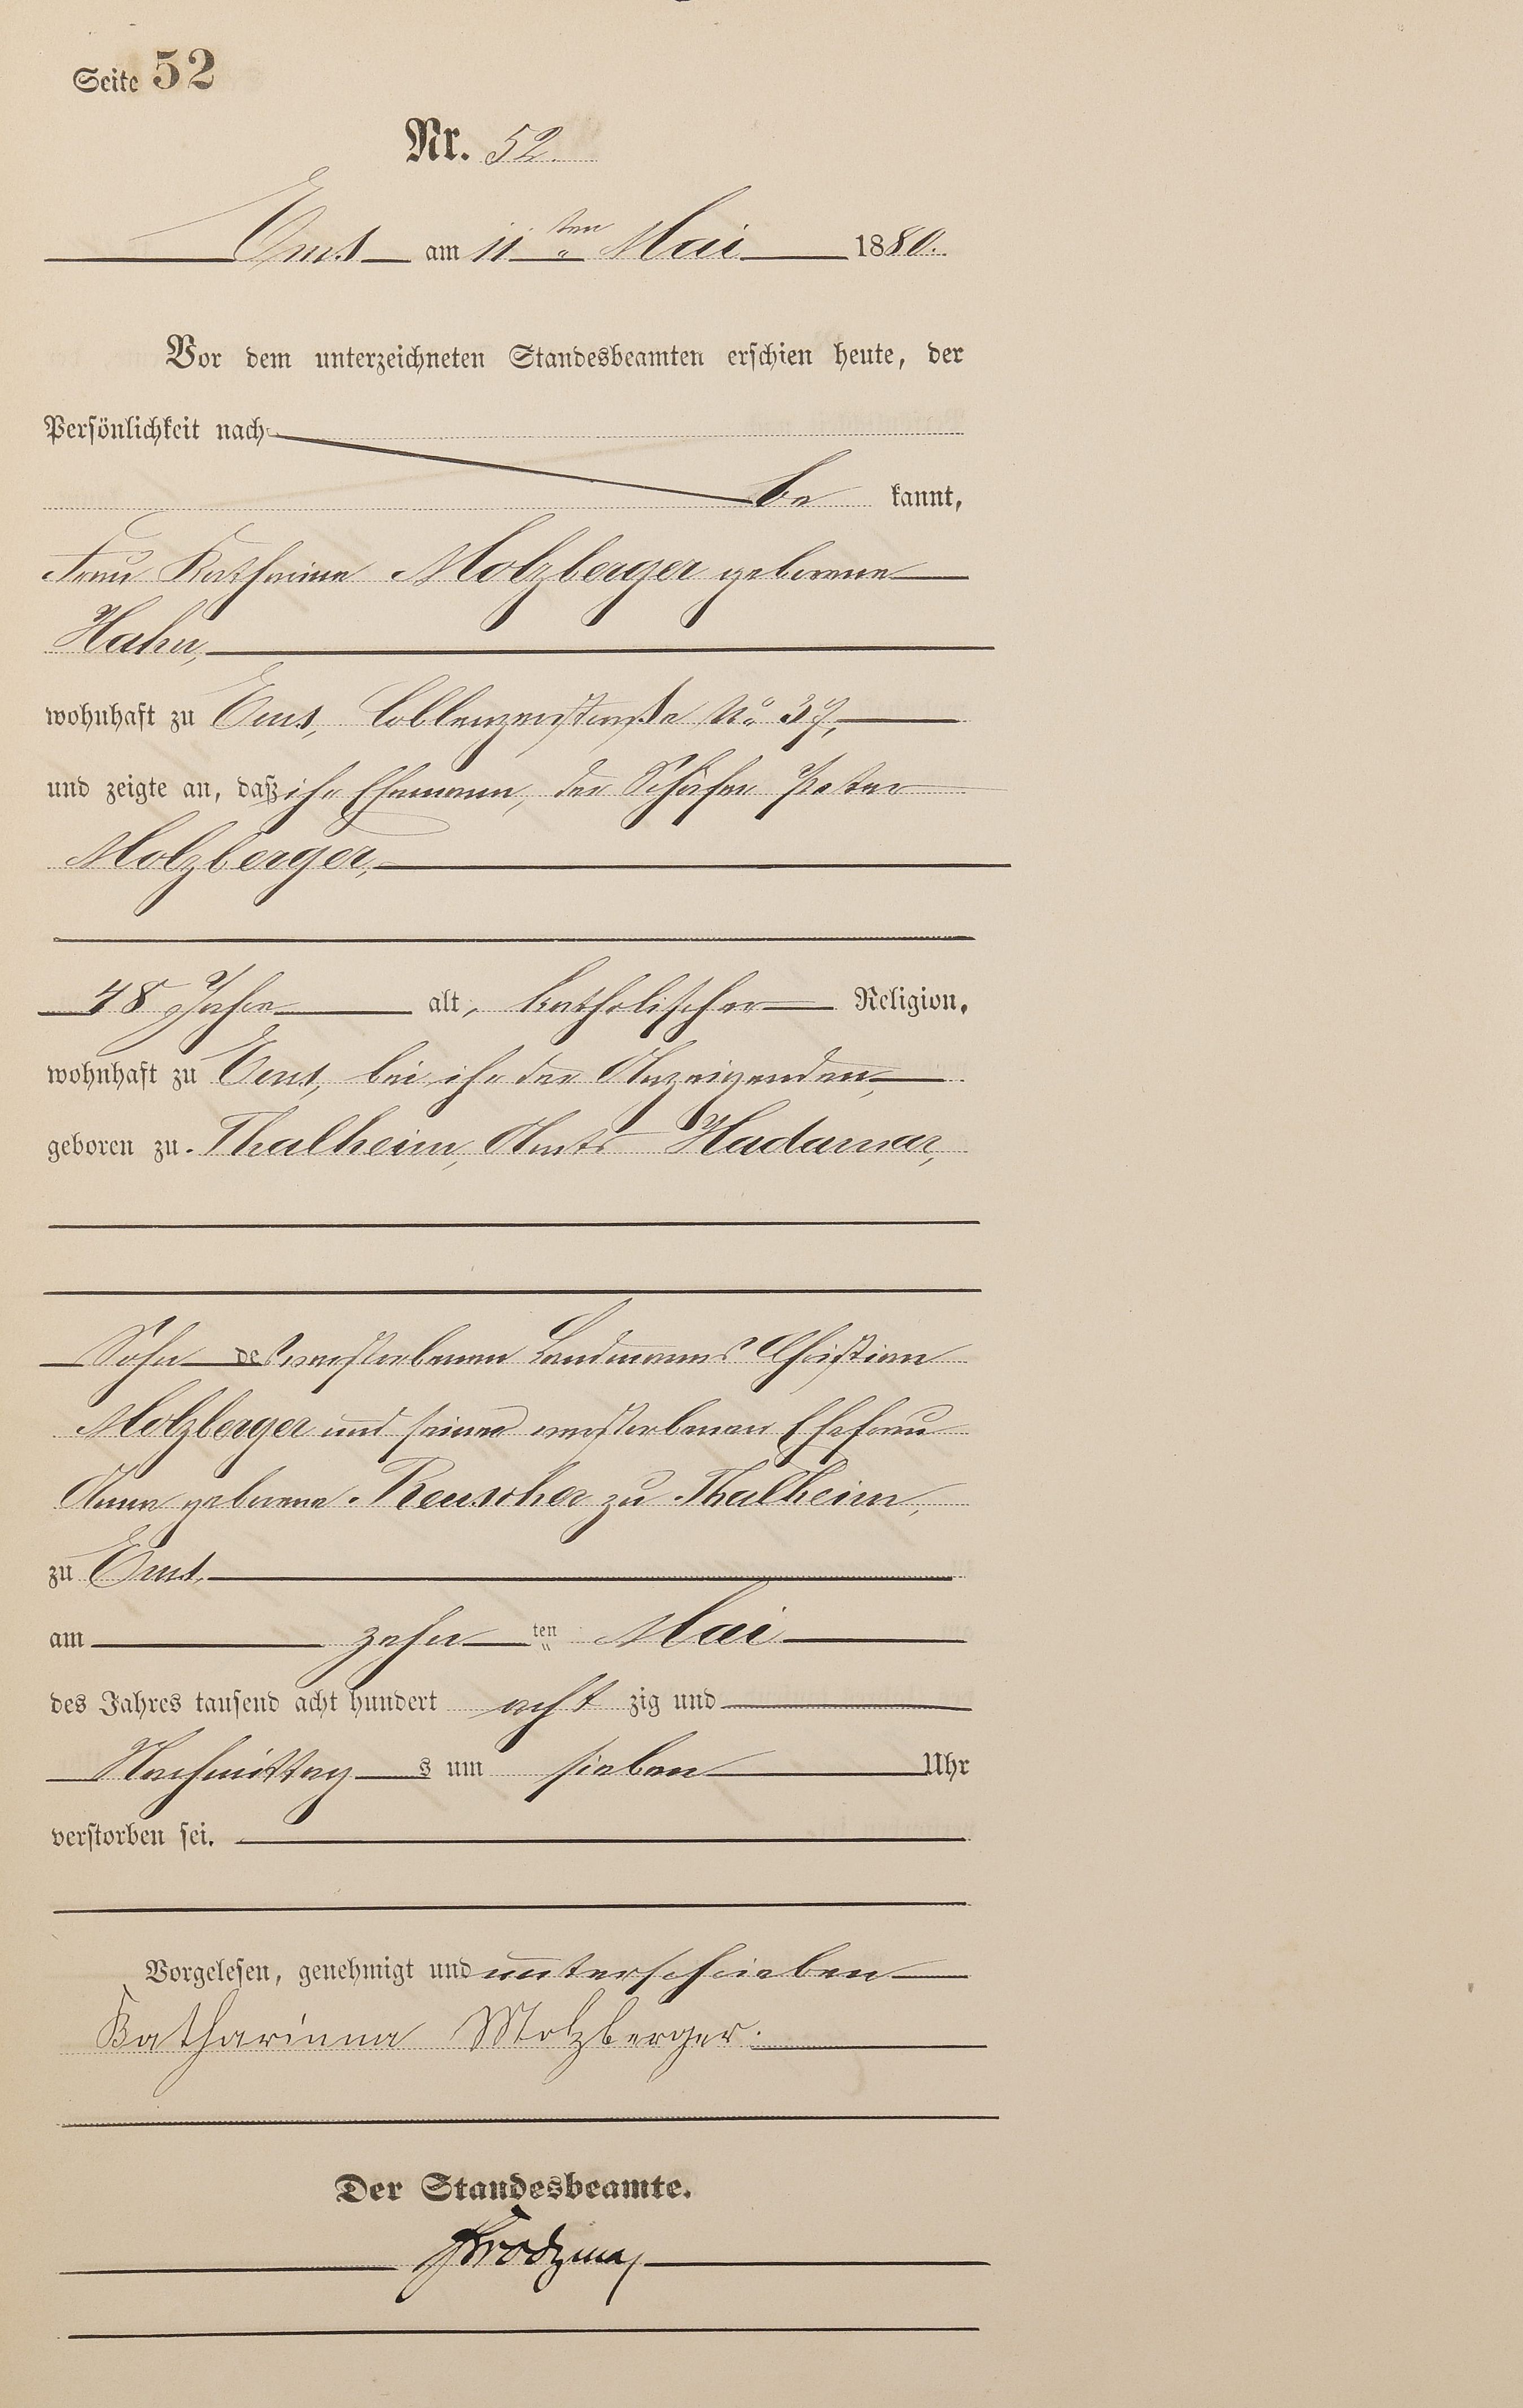 Seite 52
Nr. 52.
Ems am 11ten Mai 1880.
Vor dem unterzeichneten Standesbeamten erschien heute, der
Persönlichkeit nach
be kannt,
Frau Katharina Molzberger geborene
Hahn,
wohnhaft zu Ems, Coblenzerstraße No 37,
und zeigte an, daß ihr Ehemann, der Schäfer Peter
Molzberger,
48 Jahre alt, katholischer Religion,
wohnhaft zu Ems, bei ihr der Anzeigenden,
geboren zu Thalheim, Amts Hadamar,
Sohn des verstorbenen Landmanns Christian
Molzberger und seiner verstorbenen Ehefrau
Anna geborene Reuscher zu Thalheim,
zu Ems,
am zehn ten Mai
des Jahres tausend acht hundert acht zig und
Nachmittag s um sieben Uhr
verstorben sei.
Vorgelesen, genehmigt und unterschrieben
Katharinna Molzberger.
Der Standesbeamte.